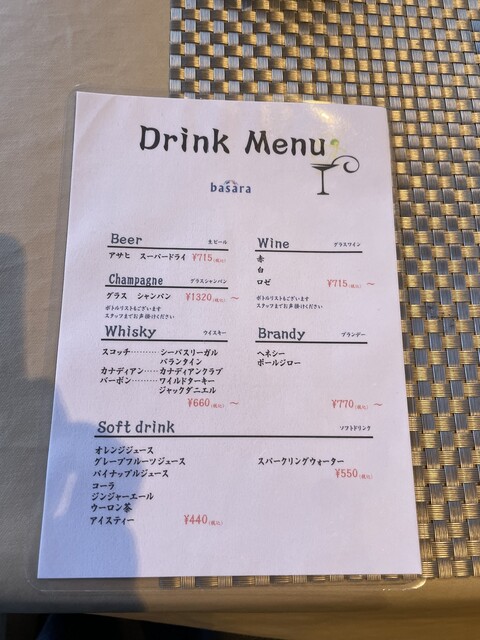 Drink Menu
basara
Beer 生ビール
アサヒ スーパードライ ¥715(税込)
Champagne グラスシャンパン
グラス シャンパン ¥1320(税込)〜
ボトルリストもございます
スタッフまでお声掛けください
Wine グラスワイン
赤
白
ロゼ ¥715(税込)〜
ボトルリストもございます
スタッフまでお声掛けください
Whisky ウイスキー
スコッチ……… シーバスリーガル
バランタイン
カナディアン…… カナディアンクラブ
バーボン……… ワイルドターキー
ジャックダニエル
¥660(税込)〜
Brandy ブランデー
ヘネシー
ポールジロー
¥770(税込)〜
Soft drink ソフトドリンク
オレンジジュース
グレープフルーツジュース
パイナップルジュース
コーラ
ジンジャーエール
ウーロン茶
アイスティー ¥440(税込)
スパークリングウォーター
¥550(税込)